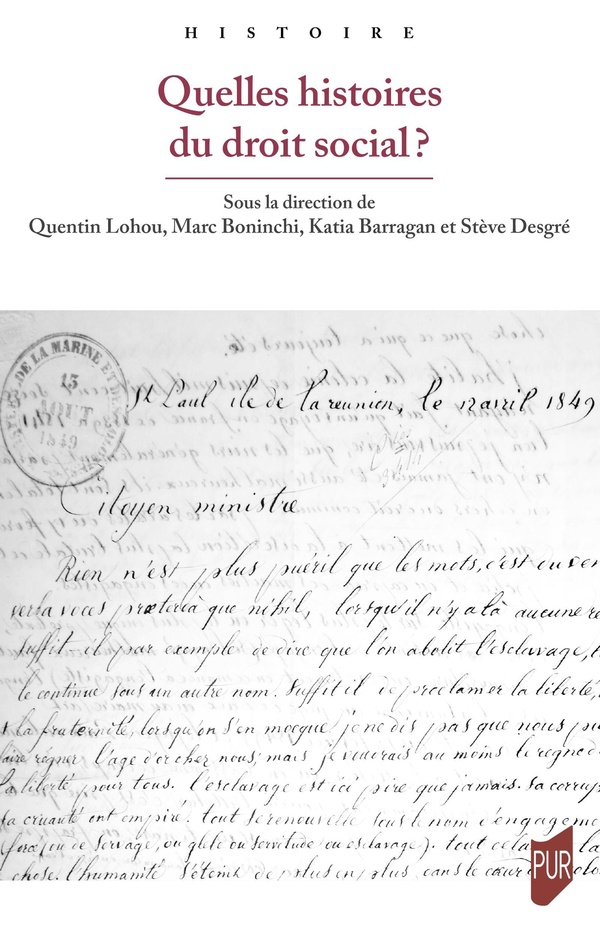 HISTOIRE
Quelles histoires
du droit social ?
Sous la direction de
Quentin Lohou, Marc Boninchi, Katia Barragan et Stève Desgré
DE LA MARINE ET DES
15
AOUT
1849
St Paul ile de la reunion, le 12 avril 1849
Citoyen ministre
Rien n'est plus puéril que les mots, c'est ou
verba voces præterià que nihil, lorsqu'il n'y a là aucune
suffit-il par exemple de dire que l'on abolit l'esclavage,
le continue sous un autre nom. suffit il de proclamer la liberté,
la fraternité, lorsqu'on s'en mocque je ne dis pas que nous
faire régner l'age d'or chez nous; mais je voudrais au moins le regne
la liberté pour tous. l'esclavage est ici pire que jamais. sa
sa cruauté ont empiré. tout se renouvelle sous le nom d'engageme
(forme de servage, ou glebe ou servitude ou esclavage). tout cela la
chose. l'humanité s'éteint de plus en plus dans le cœur
PUR